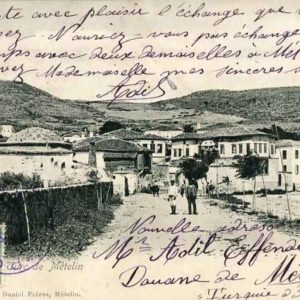 te avec plaisir l'échange que
avez. N'auriez vous pas échange
avec deux demoiselles à Mét
Mademoiselle mes sincères
Adil
Nouvelle adresse
Mr Adil Effendi
Douane de Mé
Turquie d'
de Métélin
Daniel Frères, Métélin.